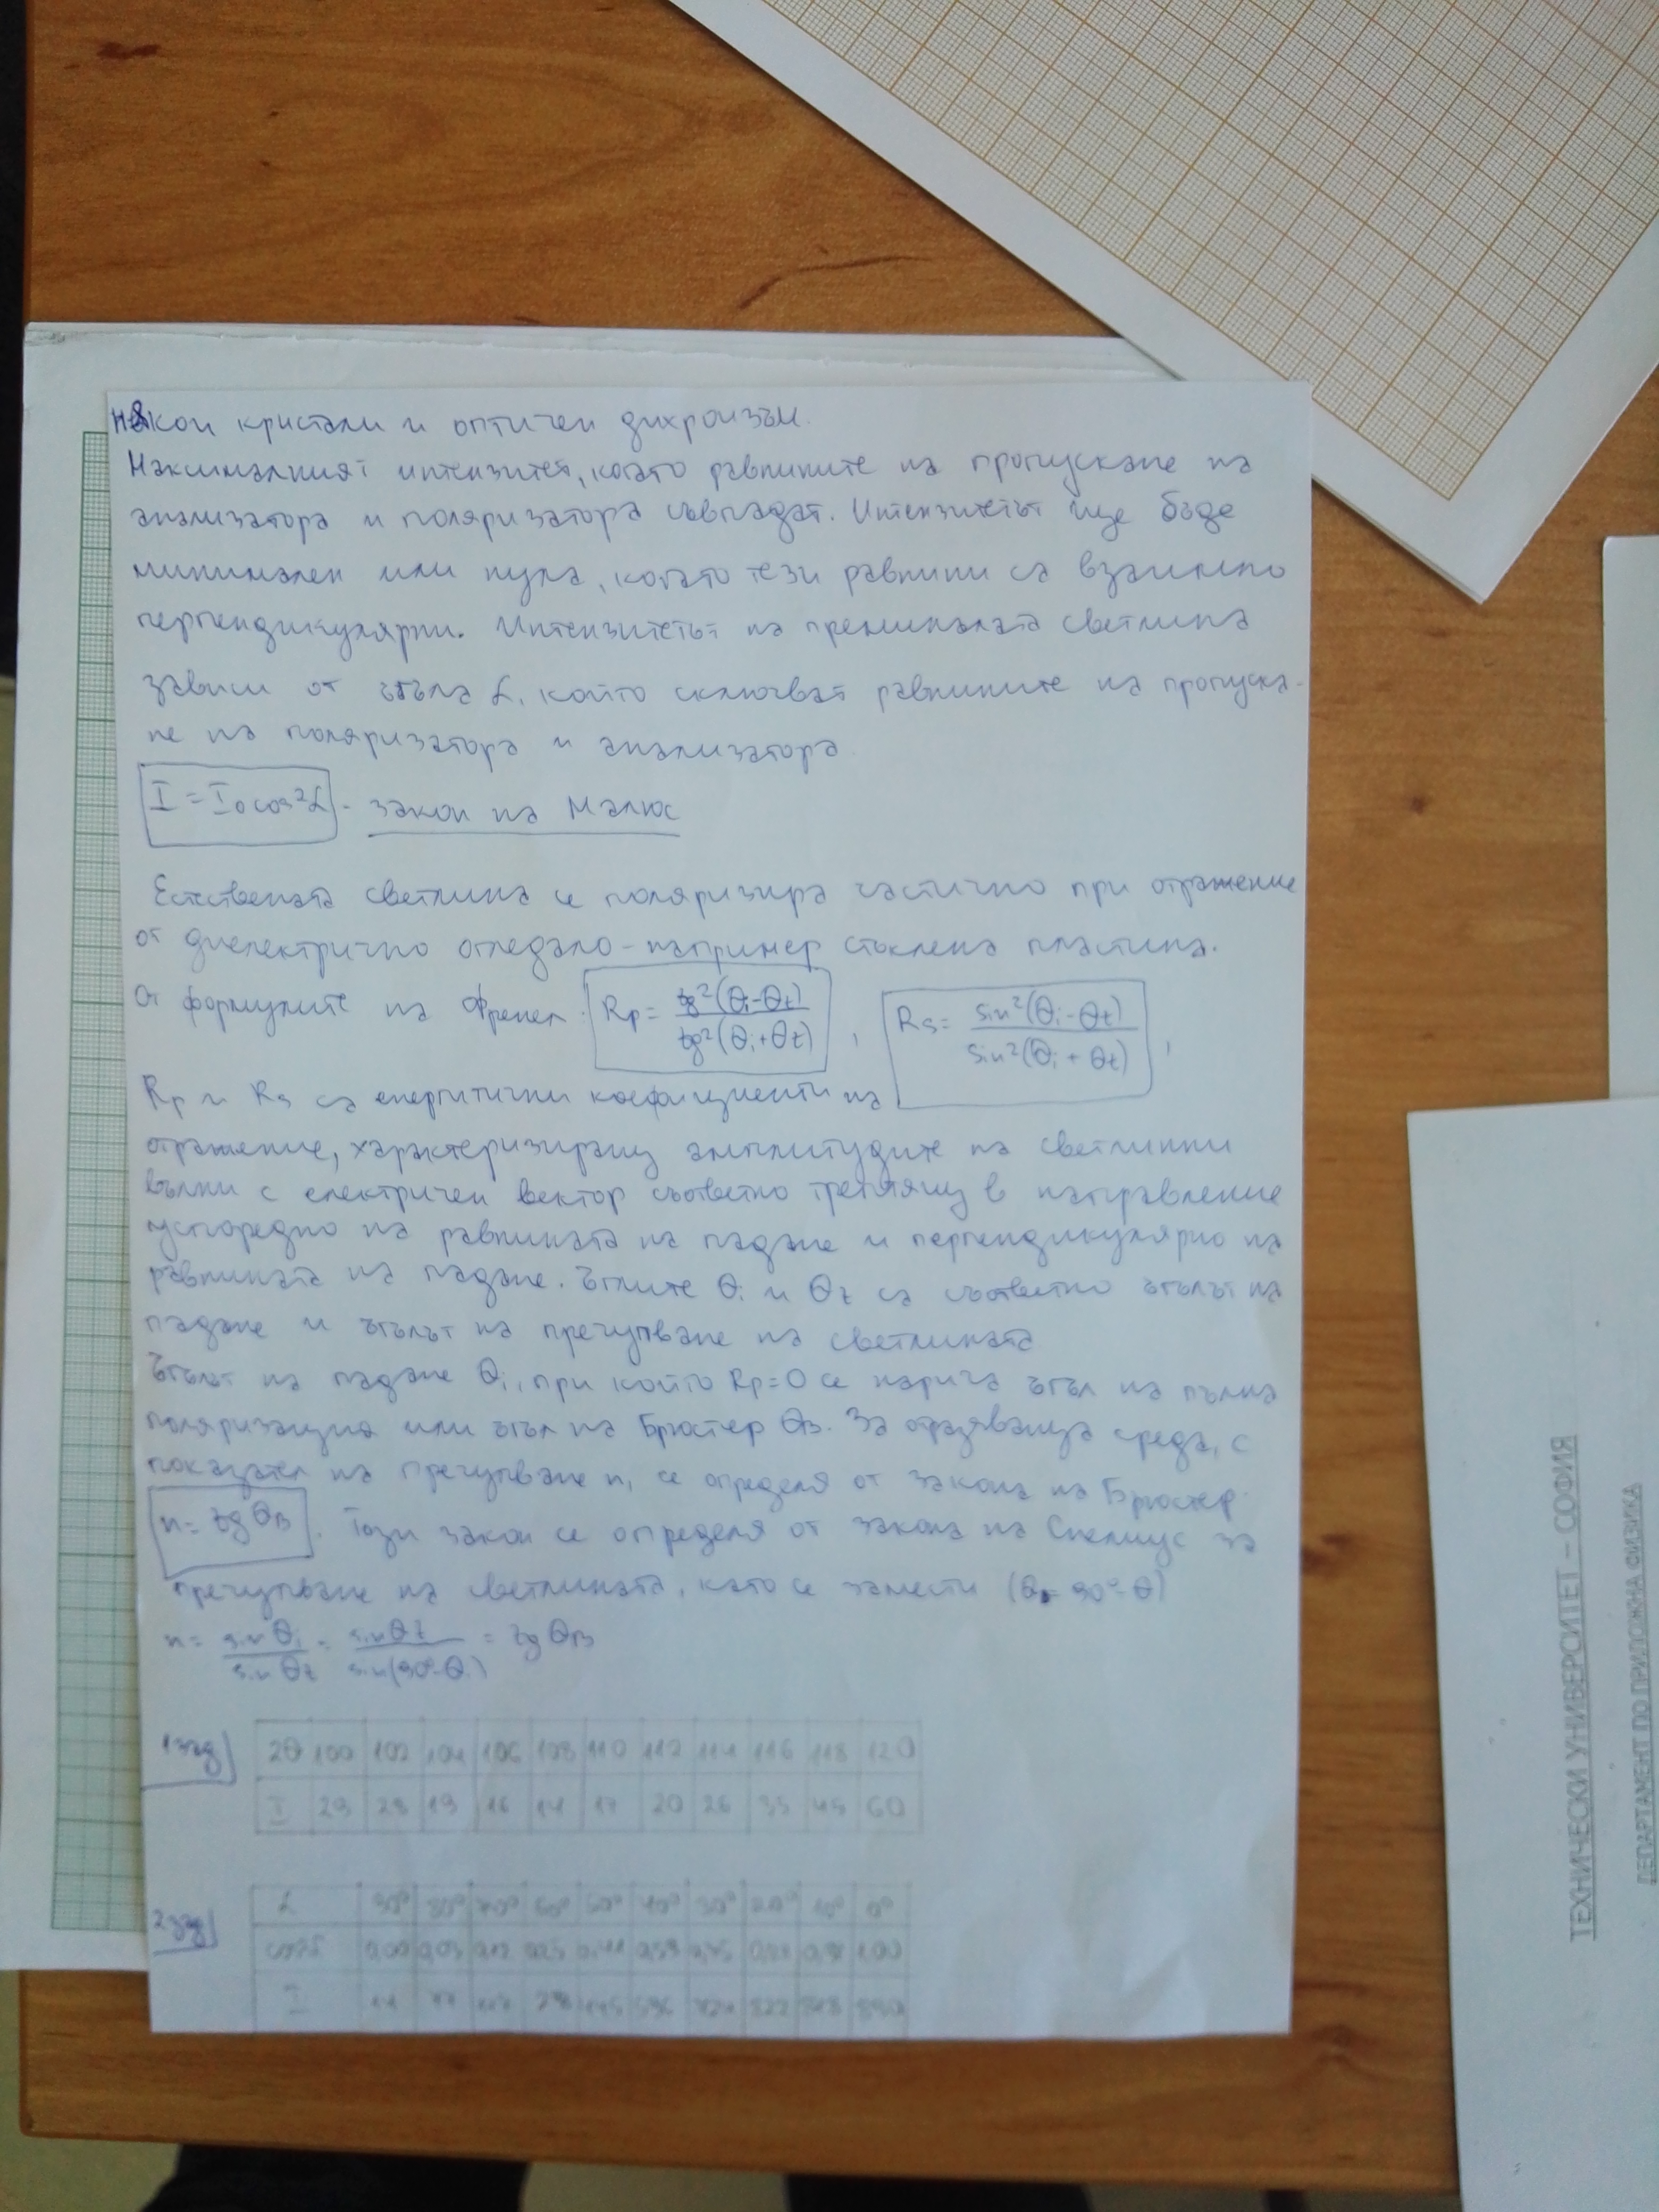 някои кристали и оптичен дихроизъм.
Максималният интензитет, когато равнините на пропускане на
анализатора и поляризатора съвпадат. Интензитетът ще бъде
минимален или нула, когато тези равнини са взаимно
перпендикулярни. Интензитетът на преминалата светлина
зависи от ъгъла α, който сключват равнините на пропуска-
не на поляризатора и анализатора.
I = I₀cos²α - закон на Малюс
Естествената светлина се поляризира частично при отражение
от диелектрично огледало - например стъклена пластина.
От формулите на Френел: Rp = tg²(θi-θt) / tg²(θi+θt) , Rs = sin²(θi-θt) / sin²(θi+θt) ,
Rp и Rs са енергитични коефициенти на
отражение, характеризиращ амплитудите на светлинни
вълни с електричен вектор съответно трептящ в направление
успоредно на равнината на падане и перпендикулярно на
равнината на падане. Ъглите θi и θt са съответно ъгълът на
падане и ъгълът на пречупване на светлината
Ъгълът на падане θi, при който Rp=0 се нарича ъгъл на пълна
поляризация или ъгъл на Брюстер θB. За отразяваща среда, с
показател на пречупване n, се определя от закона на Брюстер
n = tgθB . Този закон се определя от закона на Снелиус за
пречупване на светлината, като се замести (θ = 90°-θ)
n = sinθi / sinθt = sinθt / sin(90°-θi) = tgθB
1 зад 2θ 100 102 104 106 108 110 112 114 116 118 120
I 29 23 19 16 14 17 20 26 35 45 60
2 зад α 90° 80° 70° 60° 50° 40° 30° 20° 10° 0°
0,00 0,03 0,12 0,25 0,41 0,59 0,75 1,00
I
ТЕХНИЧЕСКИ УНИВЕРСИТЕТ – СОФИЯ
ДЕПАРТАМЕНТ ПО ПРИЛОЖНА ФИЗИКА